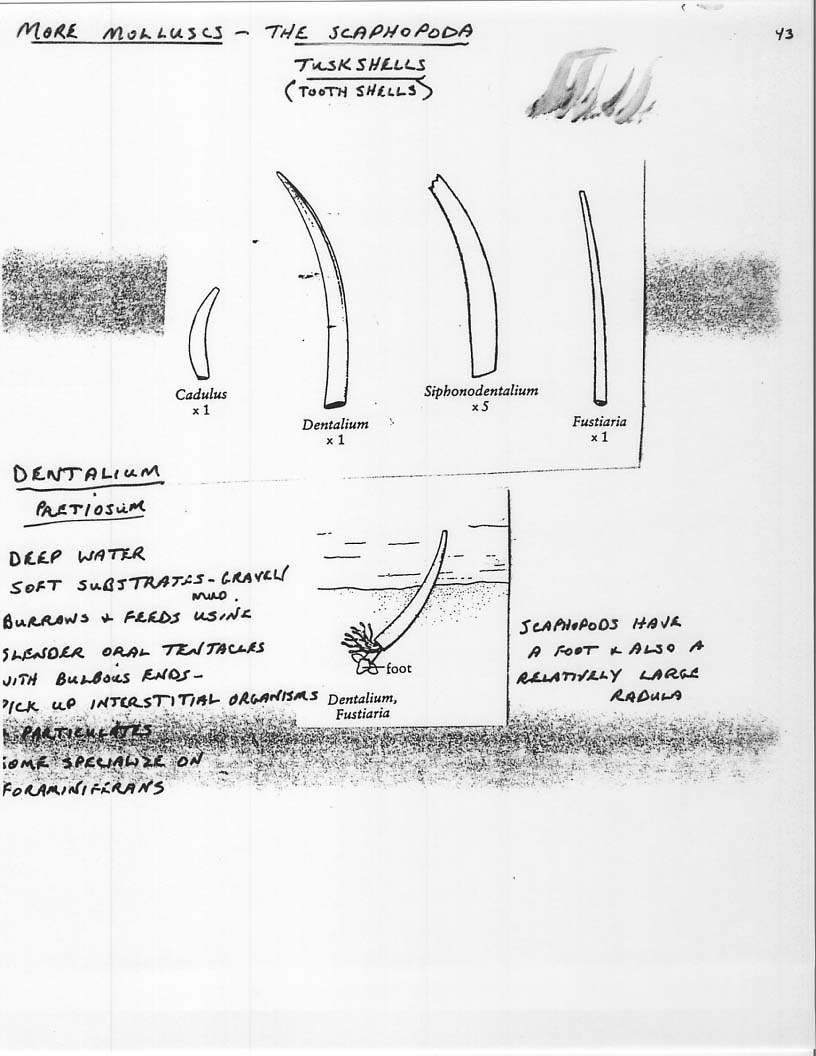 MORE MOLLUSCS - THE SCAPHOPODA
43
TUSKSHELLS
(TOOTH SHELLS)
Cadulus
x 1
Dentalium
x 1
Siphonodentalium
x 5
Fustiaria
x 1
DENTALIUM
PRETIOSUM
DEEP WATER
SOFT SUBSTRATES - GRAVEL/
MUD.
BURROWS & FEEDS USING
SLENDER ORAL TENTACLES
WITH BULBOUS ENDS-
PICK UP INTERSTITIAL ORGANISMS
& PARTICULATES
SOME SPECIALIZE ON
FORAMINIFERANS
foot
Dentalium,
Fustiaria
SCAPHOPODS HAVE
A FOOT & ALSO A
RELATIVELY LARGE
RADULA